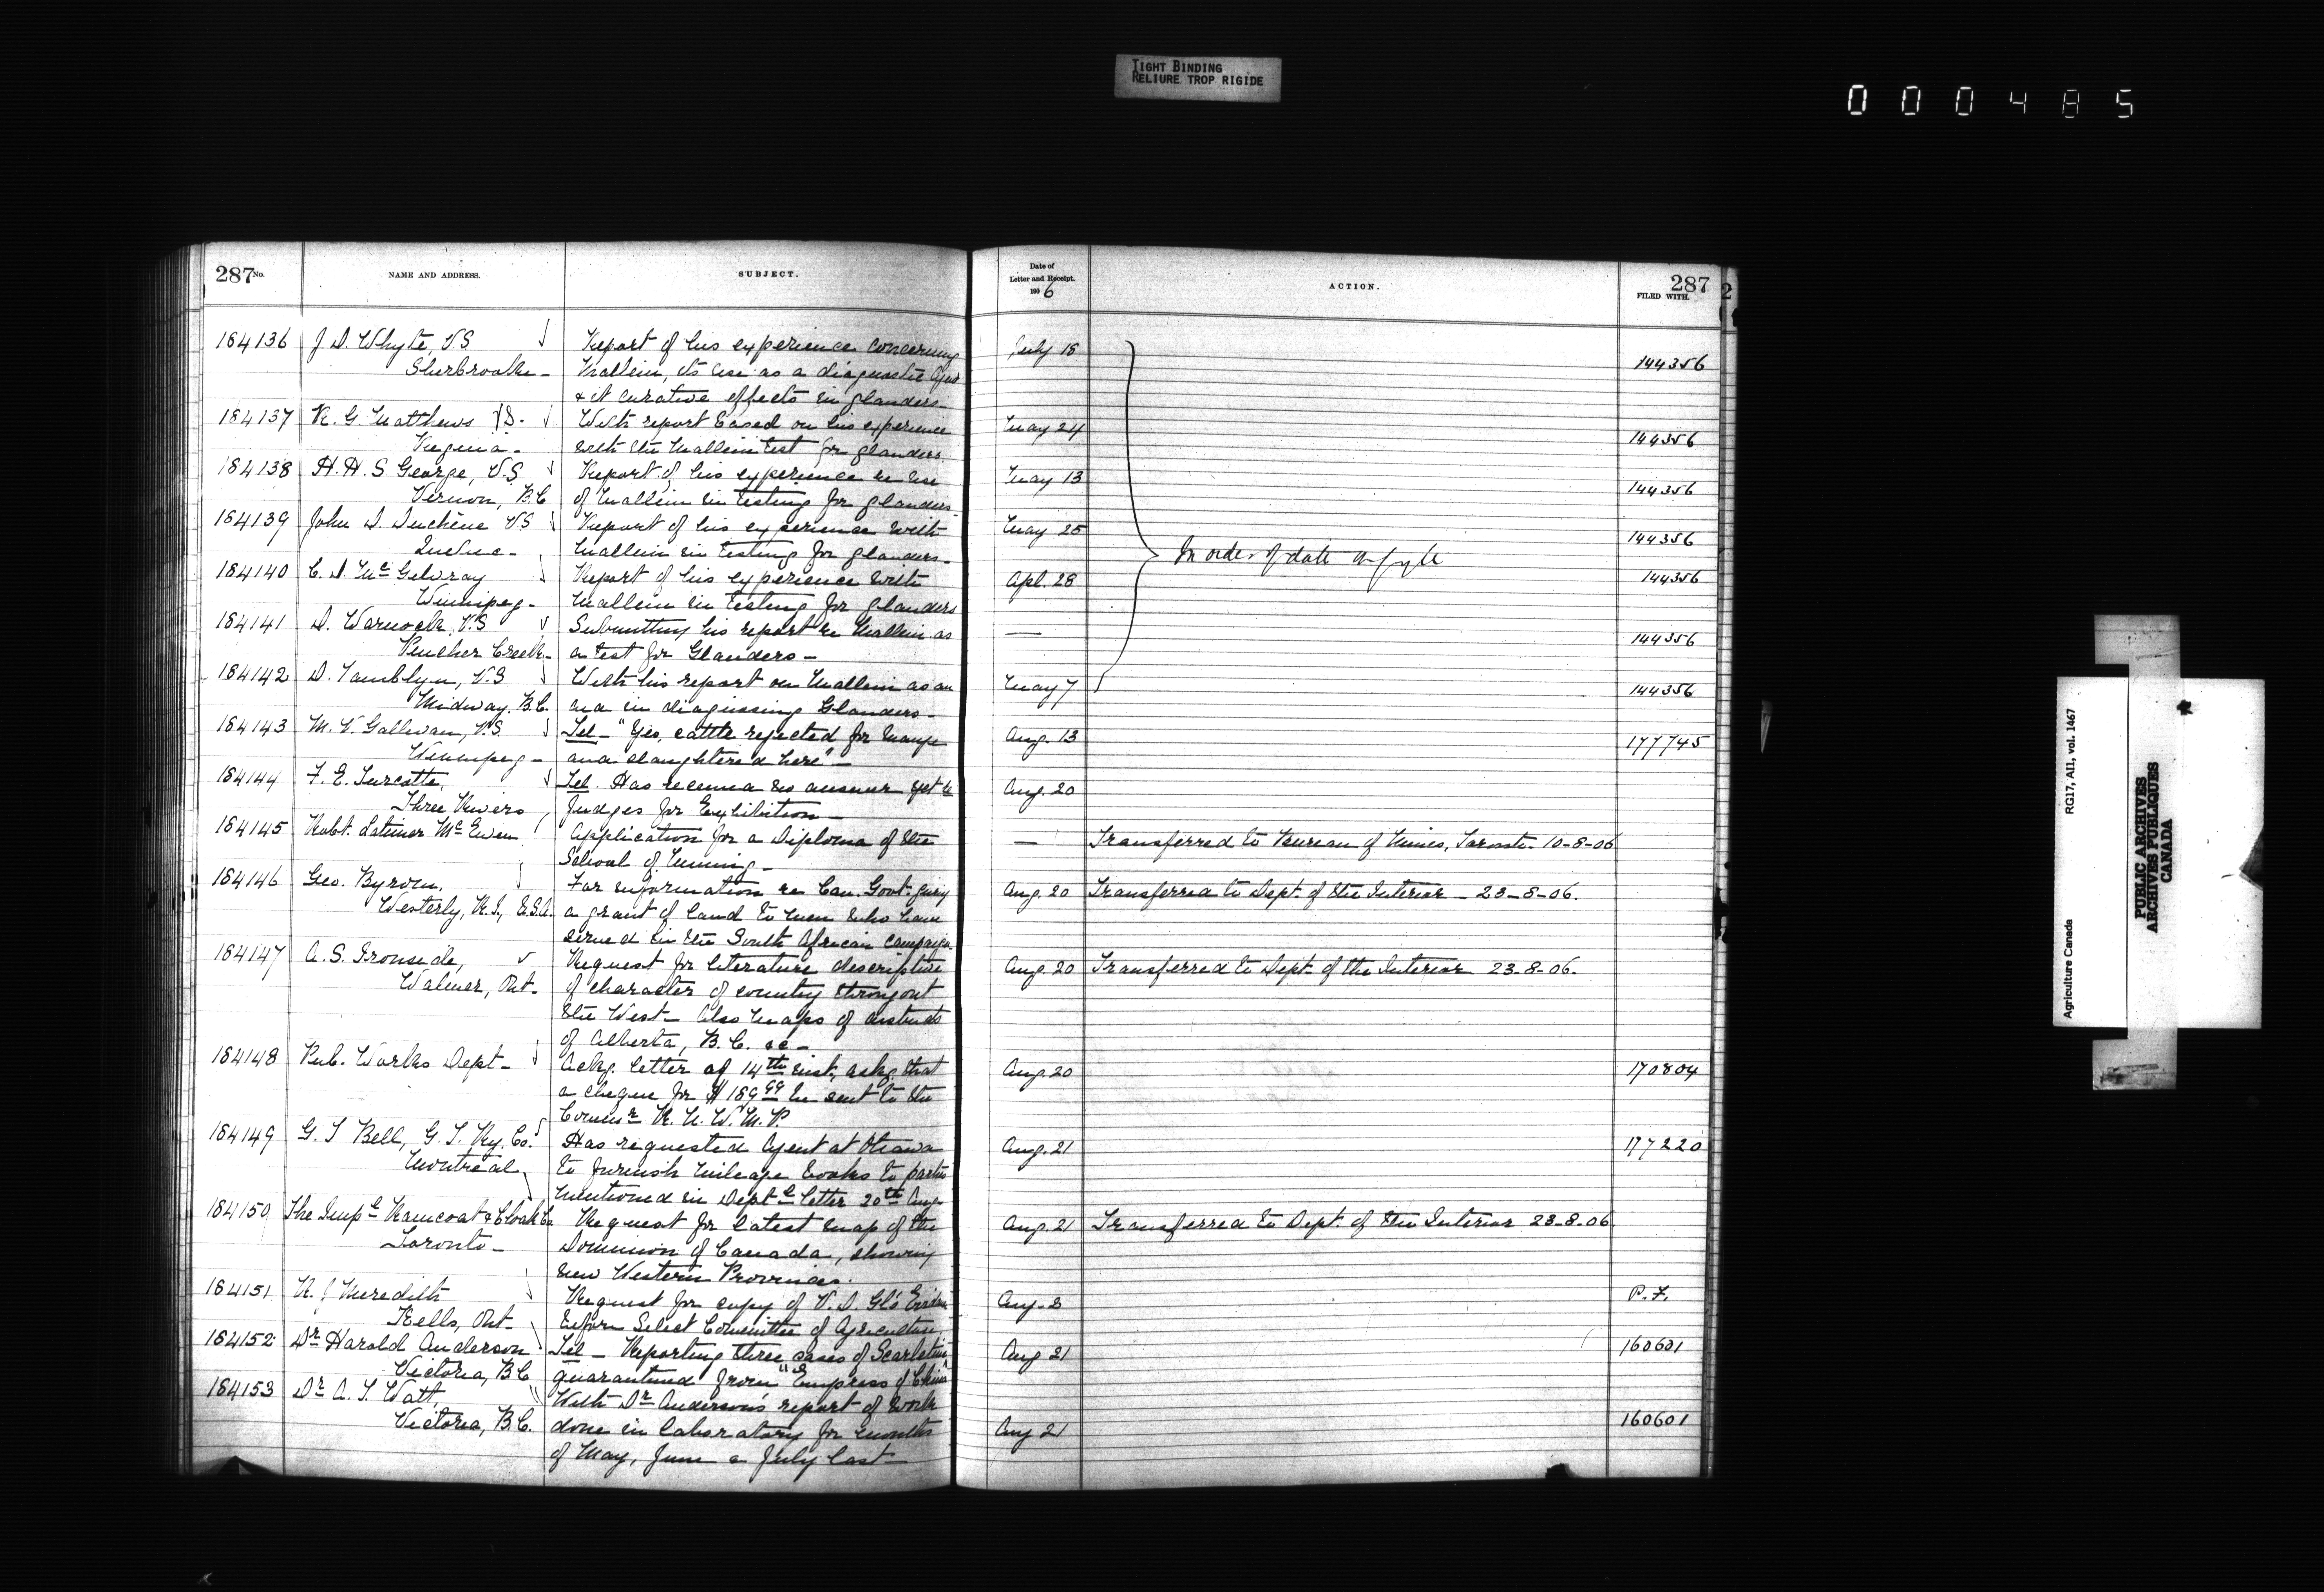 TIGHT BINDING
RELIURE TROP RIGIDE
000485
287 No. NAME AND ADDRESS. SUBJECT. Date of Letter and Receipt. 1906 ACTION. 287 FILED WITH.
184136 J. D. Whyte, V.S Report of his experience concerning July 18
Sherbrooke - Mallein, its use as a diagnostic agent 144356
& it curative effects in glanders -
184137 R. G. Matthews With report based on his experience May 24
Regina - with the Mallein test for glanders. 144356
184138 H. H. S. George, V.S. Report of his experience re use May 13
Vernon, B.C of Mallein in testing for glanders. 144356
184139 John D. Duchêne V.S Report of his experience with May 25
Quebec - Mallein in testing for glanders - 144356
In order of date on fyle
184140 C. D. McGilvray Report of his experience with Apl. 28 144356
Winnipeg - Mallein in testing for glanders
184141 D. Warnock, V.S Submitting his report re Mallein as —
Pincher Creek - a test for Glanders - 144356
184142 D. Tamblyn, V.S With his report on Mallein as an May 7 144356
Midway, B.C. aid in diagnosing Glanders -
184143 M. V. Gallivan, V.S. Tel - "Yes, cattle rejected for Mange Aug. 13 177745
Winnipeg - and slaughtered here" -
184144 F. E. Turcotte, Tel. Has received no answer yet re Aug. 20
Three Rivers Judges for Exhibition -
184145 Robt. Latimer McEwen Application for a Diploma of the — Transferred to Bureau of Mines, Toronto - 10-8-06
School of Mining -
184146 Geo. Byron, For information re Can. Govt. giving Aug. 20 Transferred to Dept. of the Interior - 23-8-06.
Westerly, R.I., U.S.A. a grant of land to men who have
served in the South African Campaign.
184147 A. S. Ironside, Request for literature descriptive Aug. 20 Transferred to Dept. of the Interior 23-8-06.
Walmer, Ont - of character of country throughout
the West - Also Maps of districts
of Alberta, B.C. &c -
184148 Pub. Works Dept - Ackg. letter of 14th inst., askg. that Aug. 20 170804
a cheque for $189.99 be sent to the
Commr R. N. W. M. P.
184149 G. T Bell, G. T. Ry. Co. Has requested Agent at Ottawa Aug. 21 177220
Montreal to furnish mileage books to parties
mentioned in Deptl letter 20th Aug.
184150 The Impl Raincoat & Cloak Co Request for latest map of the Aug. 21 Transferred to Dept. of the Interior 23-8-06
Toronto - Dominion of Canada, showing
new Western Provinces.
184151 R. J Meredith Request for copy of V. D. Gl's Evidence Aug. 8 P. F.
Kells, Ont - before Select Committee of Agriculture
184152 Dr Harold Anderson Tel - Reporting three cases of Scarletina Aug 21 160601
Victoria, B.C quarantined from "Empress of China"
184153 Dr A. T. Watt, With Dr Anderson's report of work
Victoria, B.C. done in laboratory for months Aug 21 160601
of May, June & July last -
Agriculture Canada RG17, A11, vol. 1467
PUBLIC ARCHIVES
ARCHIVES PUBLIQUES
CANADA